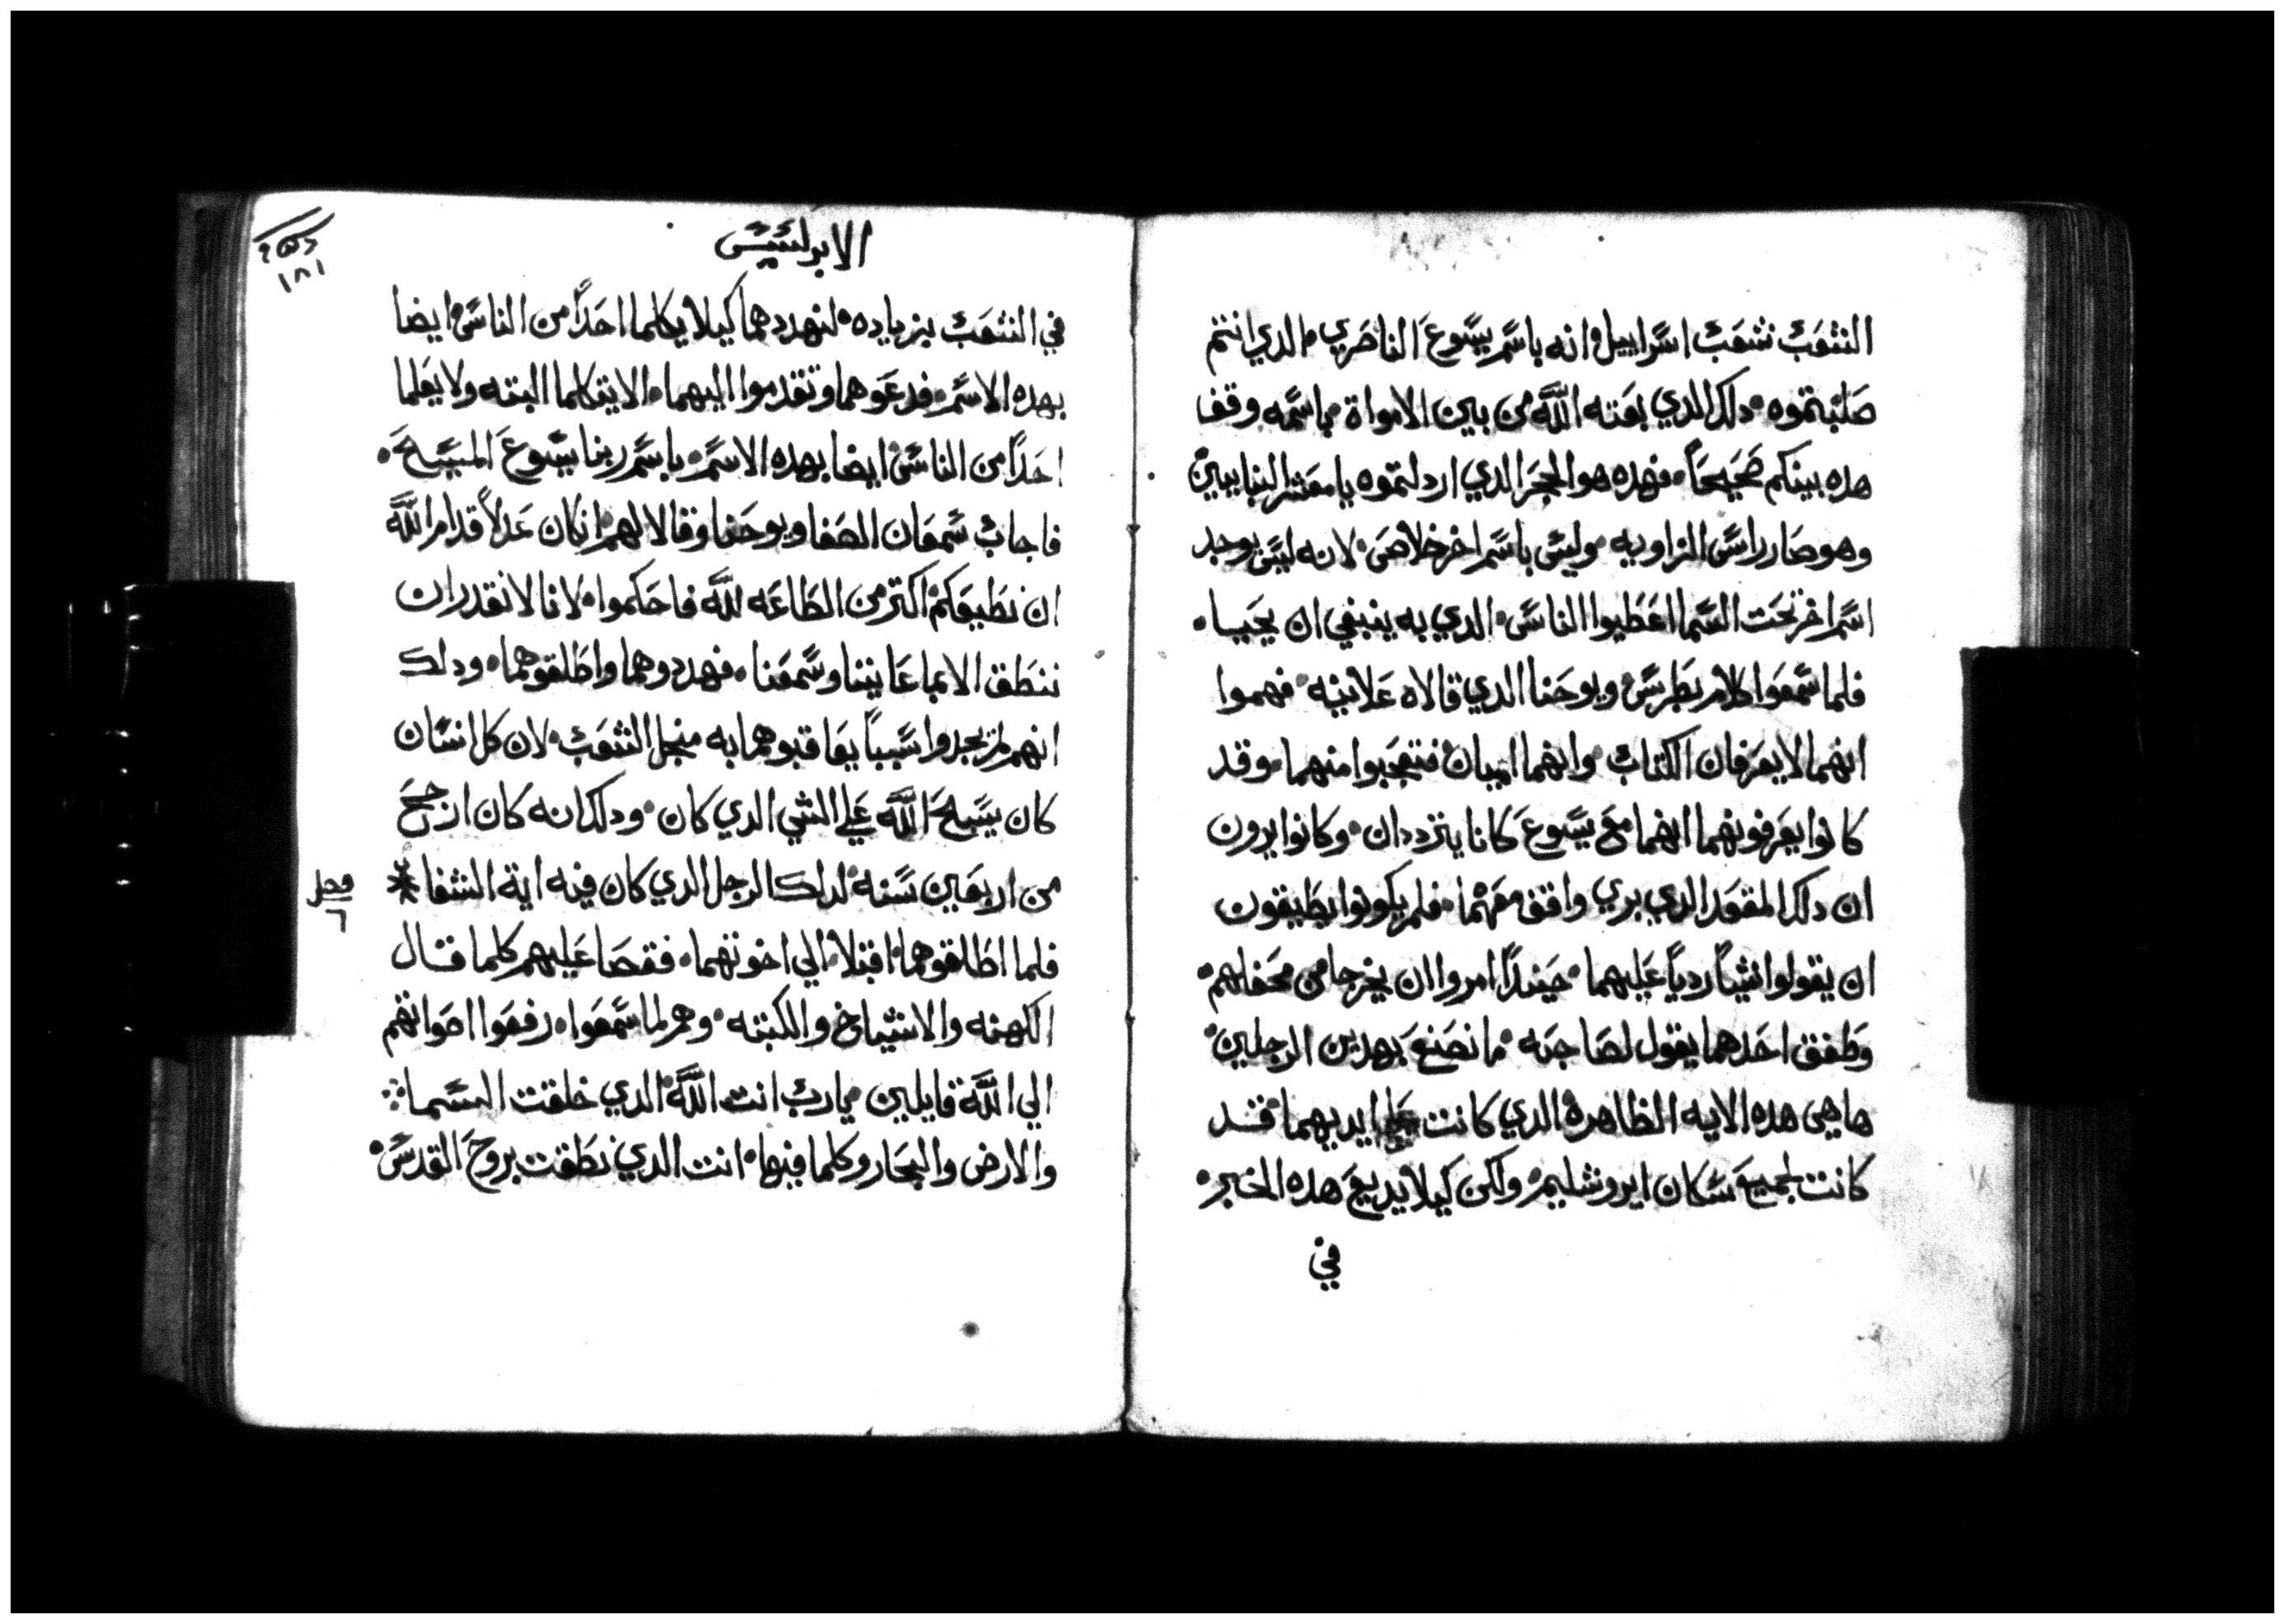 الشعب شعب اسراييل انه باسم يسوع الناصري الدي انتم
صلبتموه دلك الدي بعته الله من بين الامواة باسمه وقف
هده بينكم صحيحاً فهده هو الحجر الدي اردلتموه يا معشر البنايين
وهو صار راس الزاويه وليس باسم اخر خلاص لانه ليس يوجد
اسم اخر تحت السما اعطيوا الناس الدي به ينبغي ان يحيا
فلما سمعوا كلام بطرس ويوحنا الدي قالاه علانيه فهموا
انهما لا يعرفان الكتاب وانهما اميان فتعجبوا منهما وقد
كانوا يعرفونهما انهما مع يسوع كانا يترددان وكانوا يرون
ان دلك المقعد الدي بري واقف معهما فلم يكونوا يطيقون
ان يقولوا شياً ردياً عليهما حينداً امروا ان يخرجا من محفلهم
وطفق احدهما يقول لصاحبه ما نصنع بهدين الرجلين
هاهي هده الايه الظاهرة الدي كانت علي ايديهما قد
كانت لجميع سكان ايروشليم ولكن كيلا يديع هده الخبر
في
الابرلسيس
١٨١
في الشعب بزياده لنهددهما كيلا يكلما احداً من الناس ايضا
بهده الاسم فدعوهما وتقدموا اليهما الا يتكلما البته ولا يعلما
احداً من الناس ايضا بهده الاسم باسم ربنا يسوع المسيح
فاجاب سمعان الصفا ويوحنا وقالا لهم ان كان عدلاً قدام الله
ان نطيعكم اكتر من الطاعه لله فاحكموا لانا لا نقدر ان
ننطق الا بما عاينا وسمعنا فهددوهما واطلقوهما ودلك
انهم لم يجدوا سبباً يعاقبوهما به منجل الشعب لان كل انسان
كان يسبح الله علي الشي الدي كان ودلك انه كان ارجح
من اربعين سنه لدلك الرجل الدي كان فيه اية الشفا
فصل ٦
فلما اطلقوهما اقبلا الي اخوتهما فقصا عليهم كلما قال
الكهنه والاشياخ والكتبه وهم لما سمعوا رفعوا اصواتهم
الي الله قايلين يارب انت الله الدي خلقت السما
والارض والبحار وكلما فيها انت الدي نطقت بروح القدس